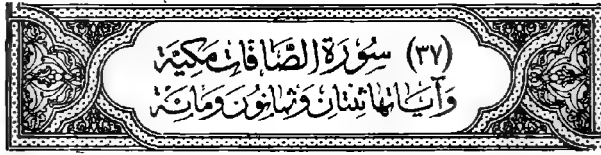 (٣٧) سُورَةُ الصَّافَّاتِ مَكيَّة
وَآيَاتهَا ثِنتَانِ وَثَمَانُونَ وَمِائَة